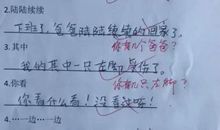 2.陆陆续续
下班了,爸爸陆陆续续的回家了。
你有几个爸爸?
3.其中
我的其中一只左脚受伤了。
你有几只左脚?
4.你看
你看什么看!没看过啊!
4.……一边……一边